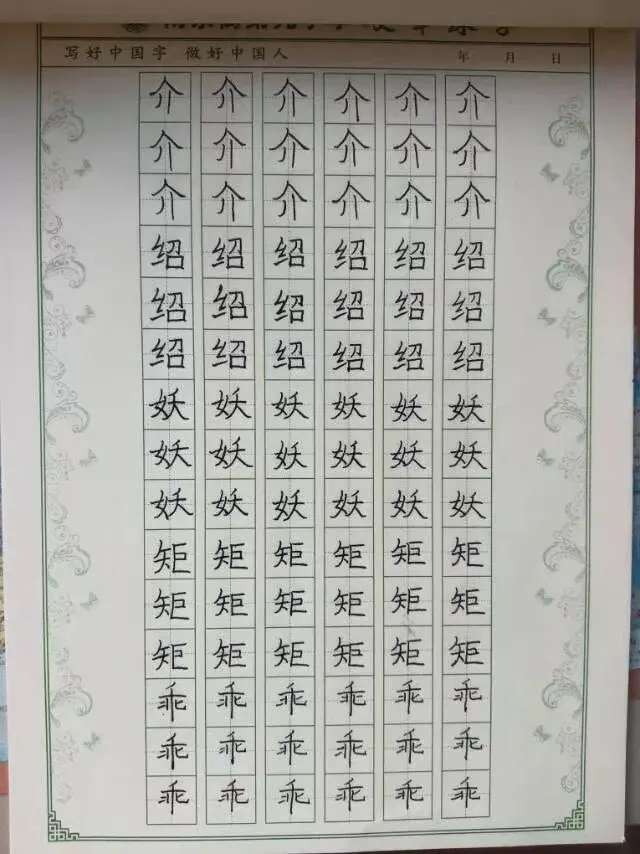 写好中国字 做好中国人 年 月 日
介介介介介介
介介介介介介
介介介介介介
绍绍绍绍绍绍
绍绍绍绍绍绍
绍绍绍绍绍绍
妖妖妖妖妖妖
妖妖妖妖妖妖
妖妖妖妖妖妖
矩矩矩矩矩矩
矩矩矩矩矩矩
矩矩矩矩矩矩
乖乖乖乖乖乖
乖乖乖乖乖乖
乖乖乖乖乖乖